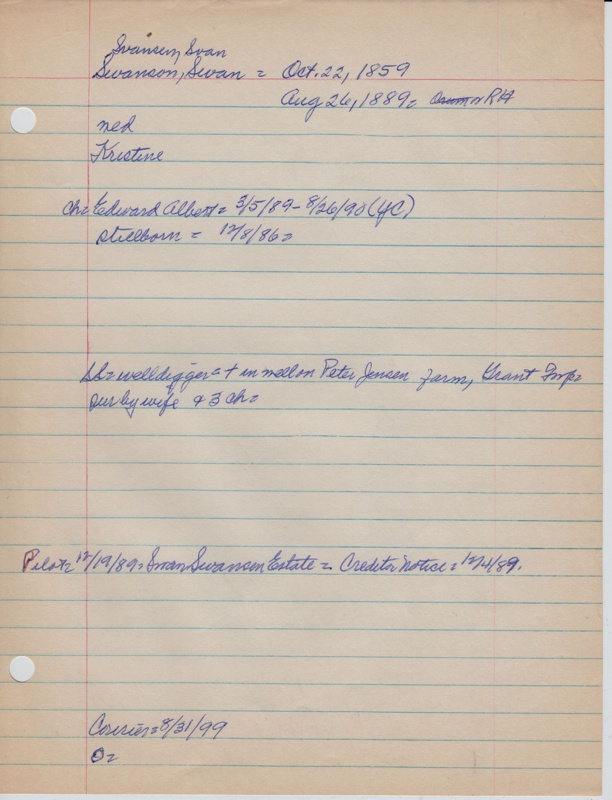 Svansen, Svan
Swanson, Swan = Oct. 22, 1859
Aug 26, 1889 = RH
ned
Kristine
ch = Edward Albert = 3/5/89 - 8/26/90 (YC)
stillborn = 12/8/86 =
LL = welldigger = + in well on Peter Jensen farm, Grant Twp =
sur by wife & 3 ch =
Pilot = 12/19/89 = Swan Swanson Estate = Creditor Notice = 12/4/89.
Courier = 8/31/99
O =